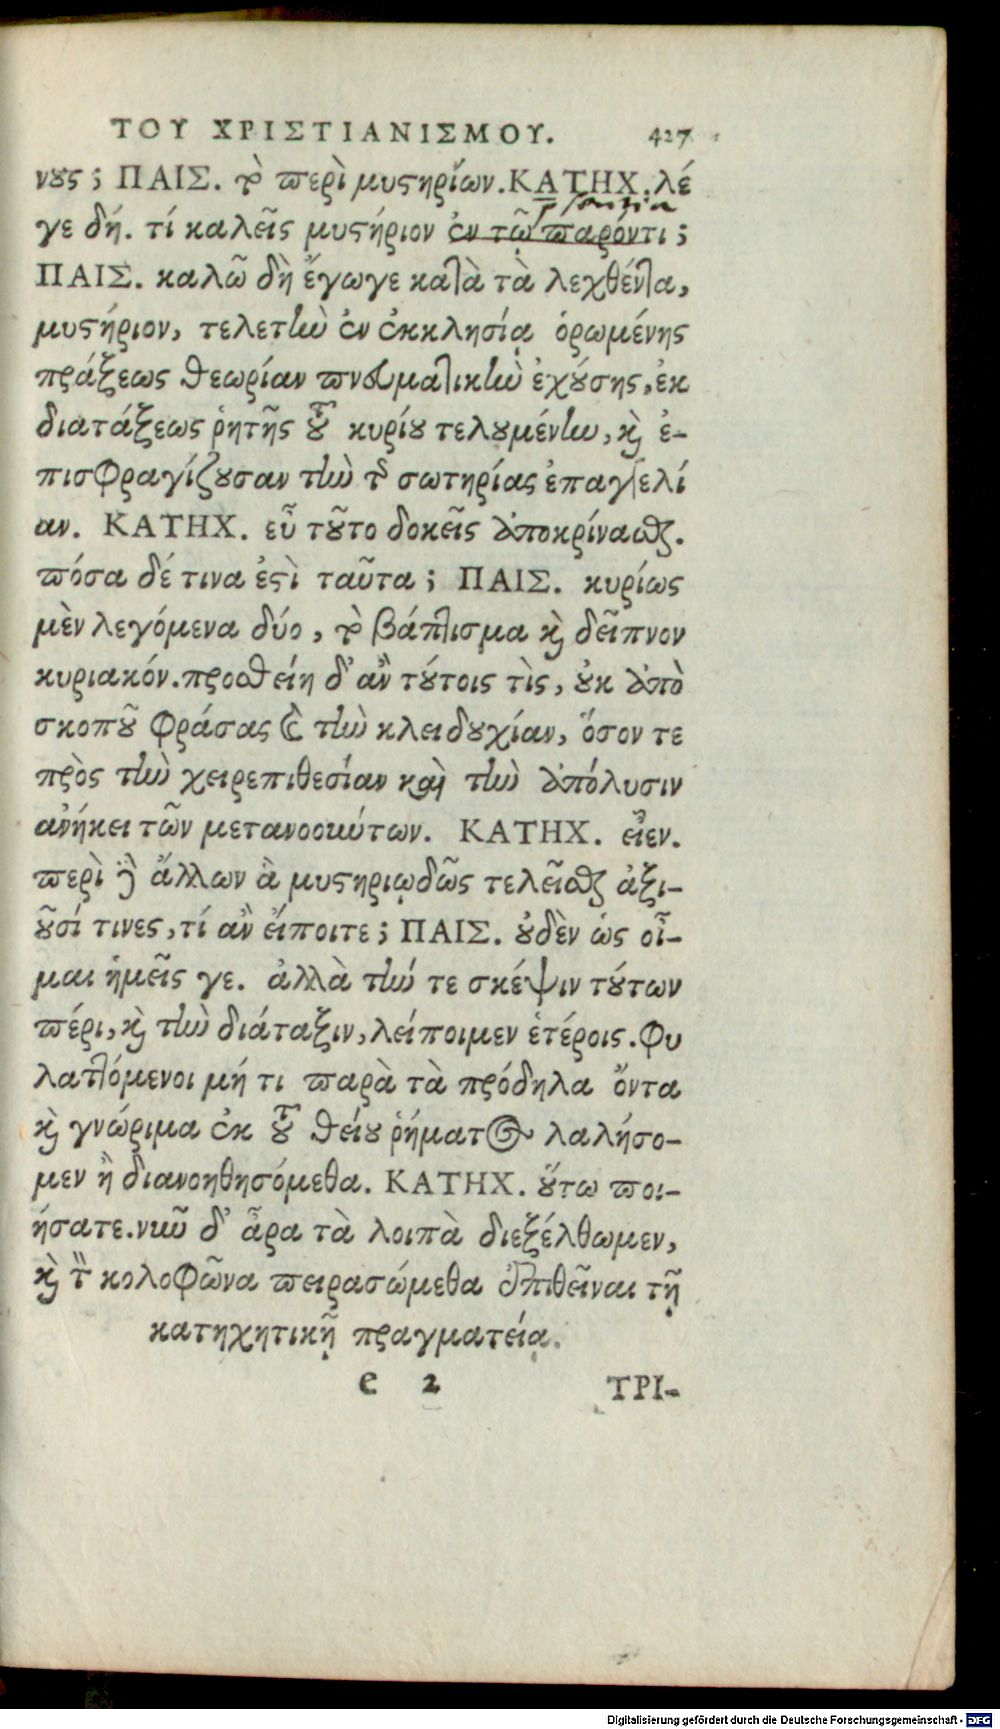 ΤΟΥ ΧΡΙΣΤΙΑΝΙΣΜΟΥ. 427
νους; ΠΑΙΣ. τὸ περὶ μυστηρίων. ΚΑΤΗΧ. λέ
γε δή. τί καλεῖς μυστήριον ἐν τῷ παρόντι;
ΠΑΙΣ. καλῶ δὴ ἔγωγε κατὰ τὰ λεχθέντα,
μυστήριον, τελετὴν ἐν ἐκκλησίᾳ ὁρωμένης
πράξεως θεωρίαν πνευματικὴν ἐχούσης, ἐκ
διατάξεως ῥητῆς τοῦ κυρίου τελουμένην, καὶ ἐ-
πισφραγίζουσαν τὴν τῆς σωτηρίας ἐπαγγελί
αν. ΚΑΤΗΧ. εὖ τοῦτο δοκεῖς ἀποκρίνασθαι.
πόσα δέ τινα ἐστὶ ταῦτα; ΠΑΙΣ. κυρίως
μὲν λεγόμενα δύο, τὸ βάπτισμα καὶ δεῖπνον
κυριακόν. προσθείη δ' ἂν τούτοις τὶς, οὐκ ἀπὸ
σκοποῦ φράσας καὶ τὴν κλειδουχίαν, ὅσον τε
πρὸς τὴν χειρεπιθεσίαν καὶ τὴν ἀπόλυσιν
ἀνήκει τῶν μετανοούντων. ΚΑΤΗΧ. εἶεν.
περὶ δὲ ἄλλων ἃ μυστηριωδῶς τελεῖσθαι ἀξι-
οῦσί τινες, τί ἂν εἴποιτε; ΠΑΙΣ. οὐδὲν ὡς οἶ-
μαι ἡμεῖς γε. ἀλλὰ τήν τε σκέψιν τούτων
πέρι, καὶ τὴν διάταξιν, λείποιμεν ἑτέροις. φυ
λαττόμενοι μή τι παρὰ τὰ πρόδηλα ὄντα
καὶ γνώριμα ἐκ τοῦ θείου ῥήματος λαλήσο-
μεν ἢ διανοηθησόμεθα. ΚΑΤΗΧ. οὕτω ποι-
ήσατε. νῦν δ' ἆρα τὰ λοιπὰ διεξέλθωμεν,
καὶ τὸν κολοφῶνα πειρασώμεθα ἐπιθεῖναι τῇ
κατηχητικῇ πραγματείᾳ.
e 2 ΤΡΙ-
Digitalisierung gefördert durch die Deutsche Forschungsgemeinschaft - DFG